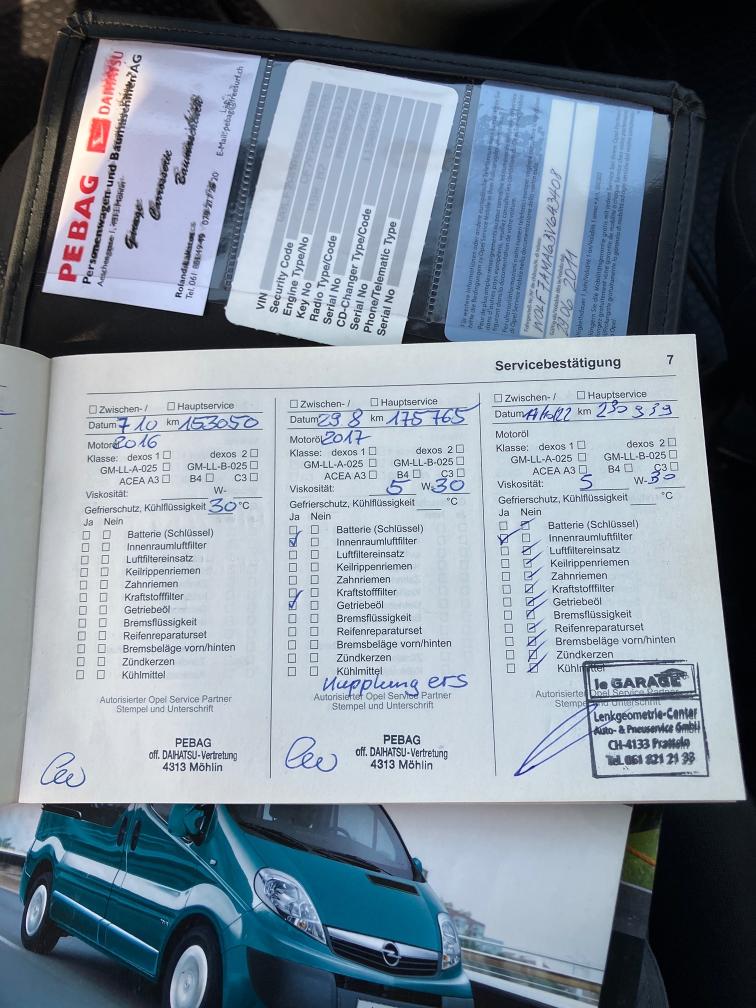 PEBAG DAIHATSU
Personenwagen und Baumaschinen AG
Garage
Carrosserie
E-Mail: pebag@freesurf.ch
VIN
Security Code
Engine Type/No
Key No
Radio Type/Code
Serial No
CD-Changer Type/Code
Serial No
Phone/Telematic Type
Serial No
29.06 2011
Servicebestätigung 7
Zwischen-/ Hauptservice
Datum 7 10 km 153050
Motoröl 2016
Klasse: dexos 1 dexos 2
GM-LL-A-025 GM-LL-B-025
ACEA A3 B4 C3
Viskosität: W-
Gefrierschutz, Kühlflüssigkeit 30 °C
Ja Nein
Batterie (Schlüssel)
Innenraumluftfilter
Luftfiltereinsatz
Keilrippenriemen
Zahnriemen
Kraftstofffilter
Getriebeöl
Bremsflüssigkeit
Reifenreparaturset
Bremsbeläge vorn/hinten
Zündkerzen
Kühlmittel
Autorisierter Opel Service Partner
Stempel und Unterschrift
PEBAG
off. DAIHATSU-Vertretung
4313 Möhlin
Zwischen-/ Hauptservice
Datum 29 8 km 175765
Motoröl 2017
Klasse: dexos 1 dexos 2
GM-LL-A-025 GM-LL-B-025
ACEA A3 B4 C3
Viskosität: 5 W-30
Gefrierschutz, Kühlflüssigkeit °C
Ja Nein
Batterie (Schlüssel)
Innenraumluftfilter
Luftfiltereinsatz
Keilrippenriemen
Zahnriemen
Kraftstofffilter
Getriebeöl
Bremsflüssigkeit
Reifenreparaturset
Bremsbeläge vorn/hinten
Zündkerzen
Kühlmittel
Kupplung ers
Autorisierter Opel Service Partner
Stempel und Unterschrift
PEBAG
off. DAIHATSU-Vertretung
4313 Möhlin
Zwischen-/ Hauptservice
Datum km 230 939
Motoröl
Klasse: dexos 1 dexos 2
GM-LL-A-025 GM-LL-B-025
ACEA A3 B4 C3
Viskosität: 5 W-30
Gefrierschutz, Kühlflüssigkeit °C
Ja Nein
Batterie (Schlüssel)
Innenraumluftfilter
Luftfiltereinsatz
Keilrippenriemen
Zahnriemen
Kraftstofffilter
Getriebeöl
Bremsflüssigkeit
Reifenreparaturset
Bremsbeläge vorn/hinten
Zündkerzen
Kühlmittel
Autorisierter Opel Service Partner
Stempel und Unterschrift
le GARAGE
Lenkgeometrie-Center
Auto- & Pneuservice GmbH
CH-4133 Pratteln
Tel. 061 821 21 33